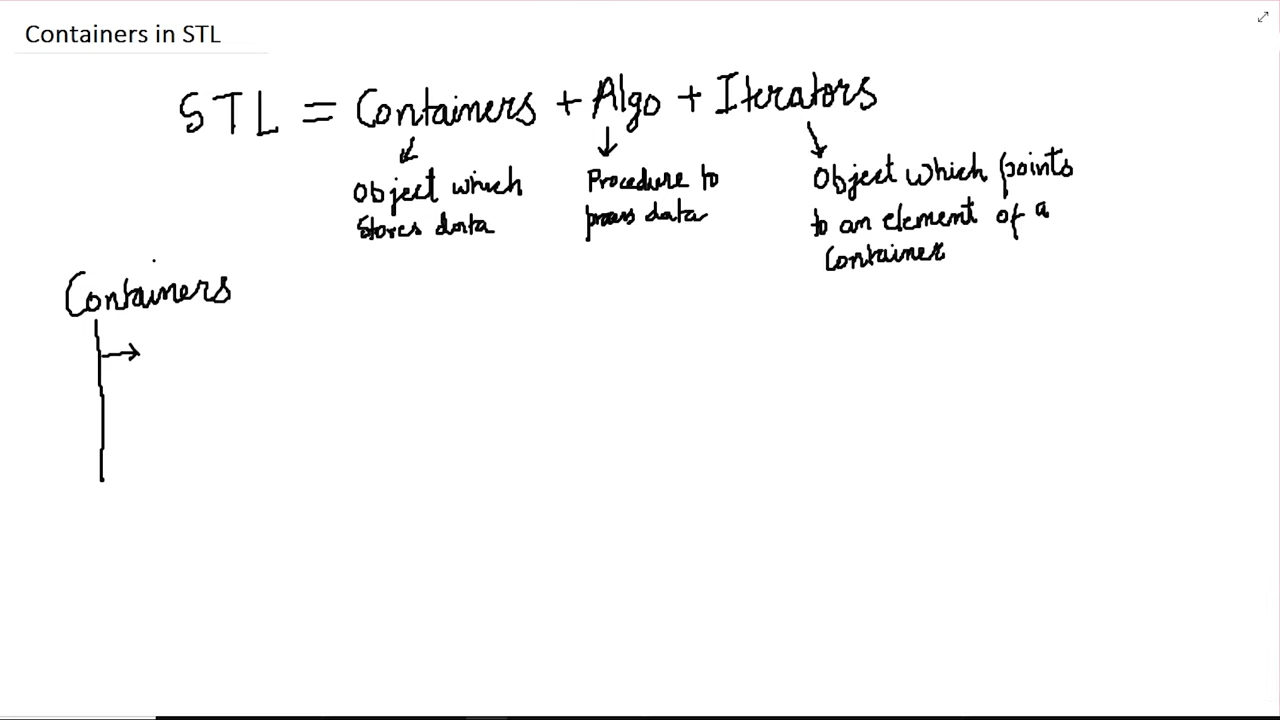 Containers in STL
STL = Containers + Algo + Iterators
Object which stores data
Procedure to process data
Object which points to an element of a Container
Containers